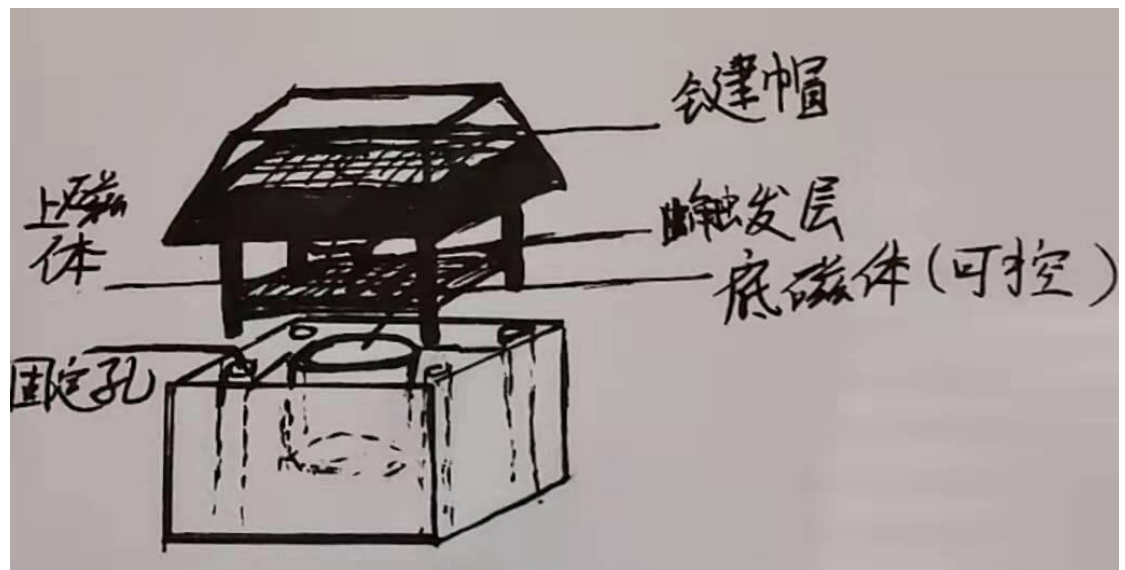 键帽
上磁
体
触发层
底磁体(可控)
固定孔